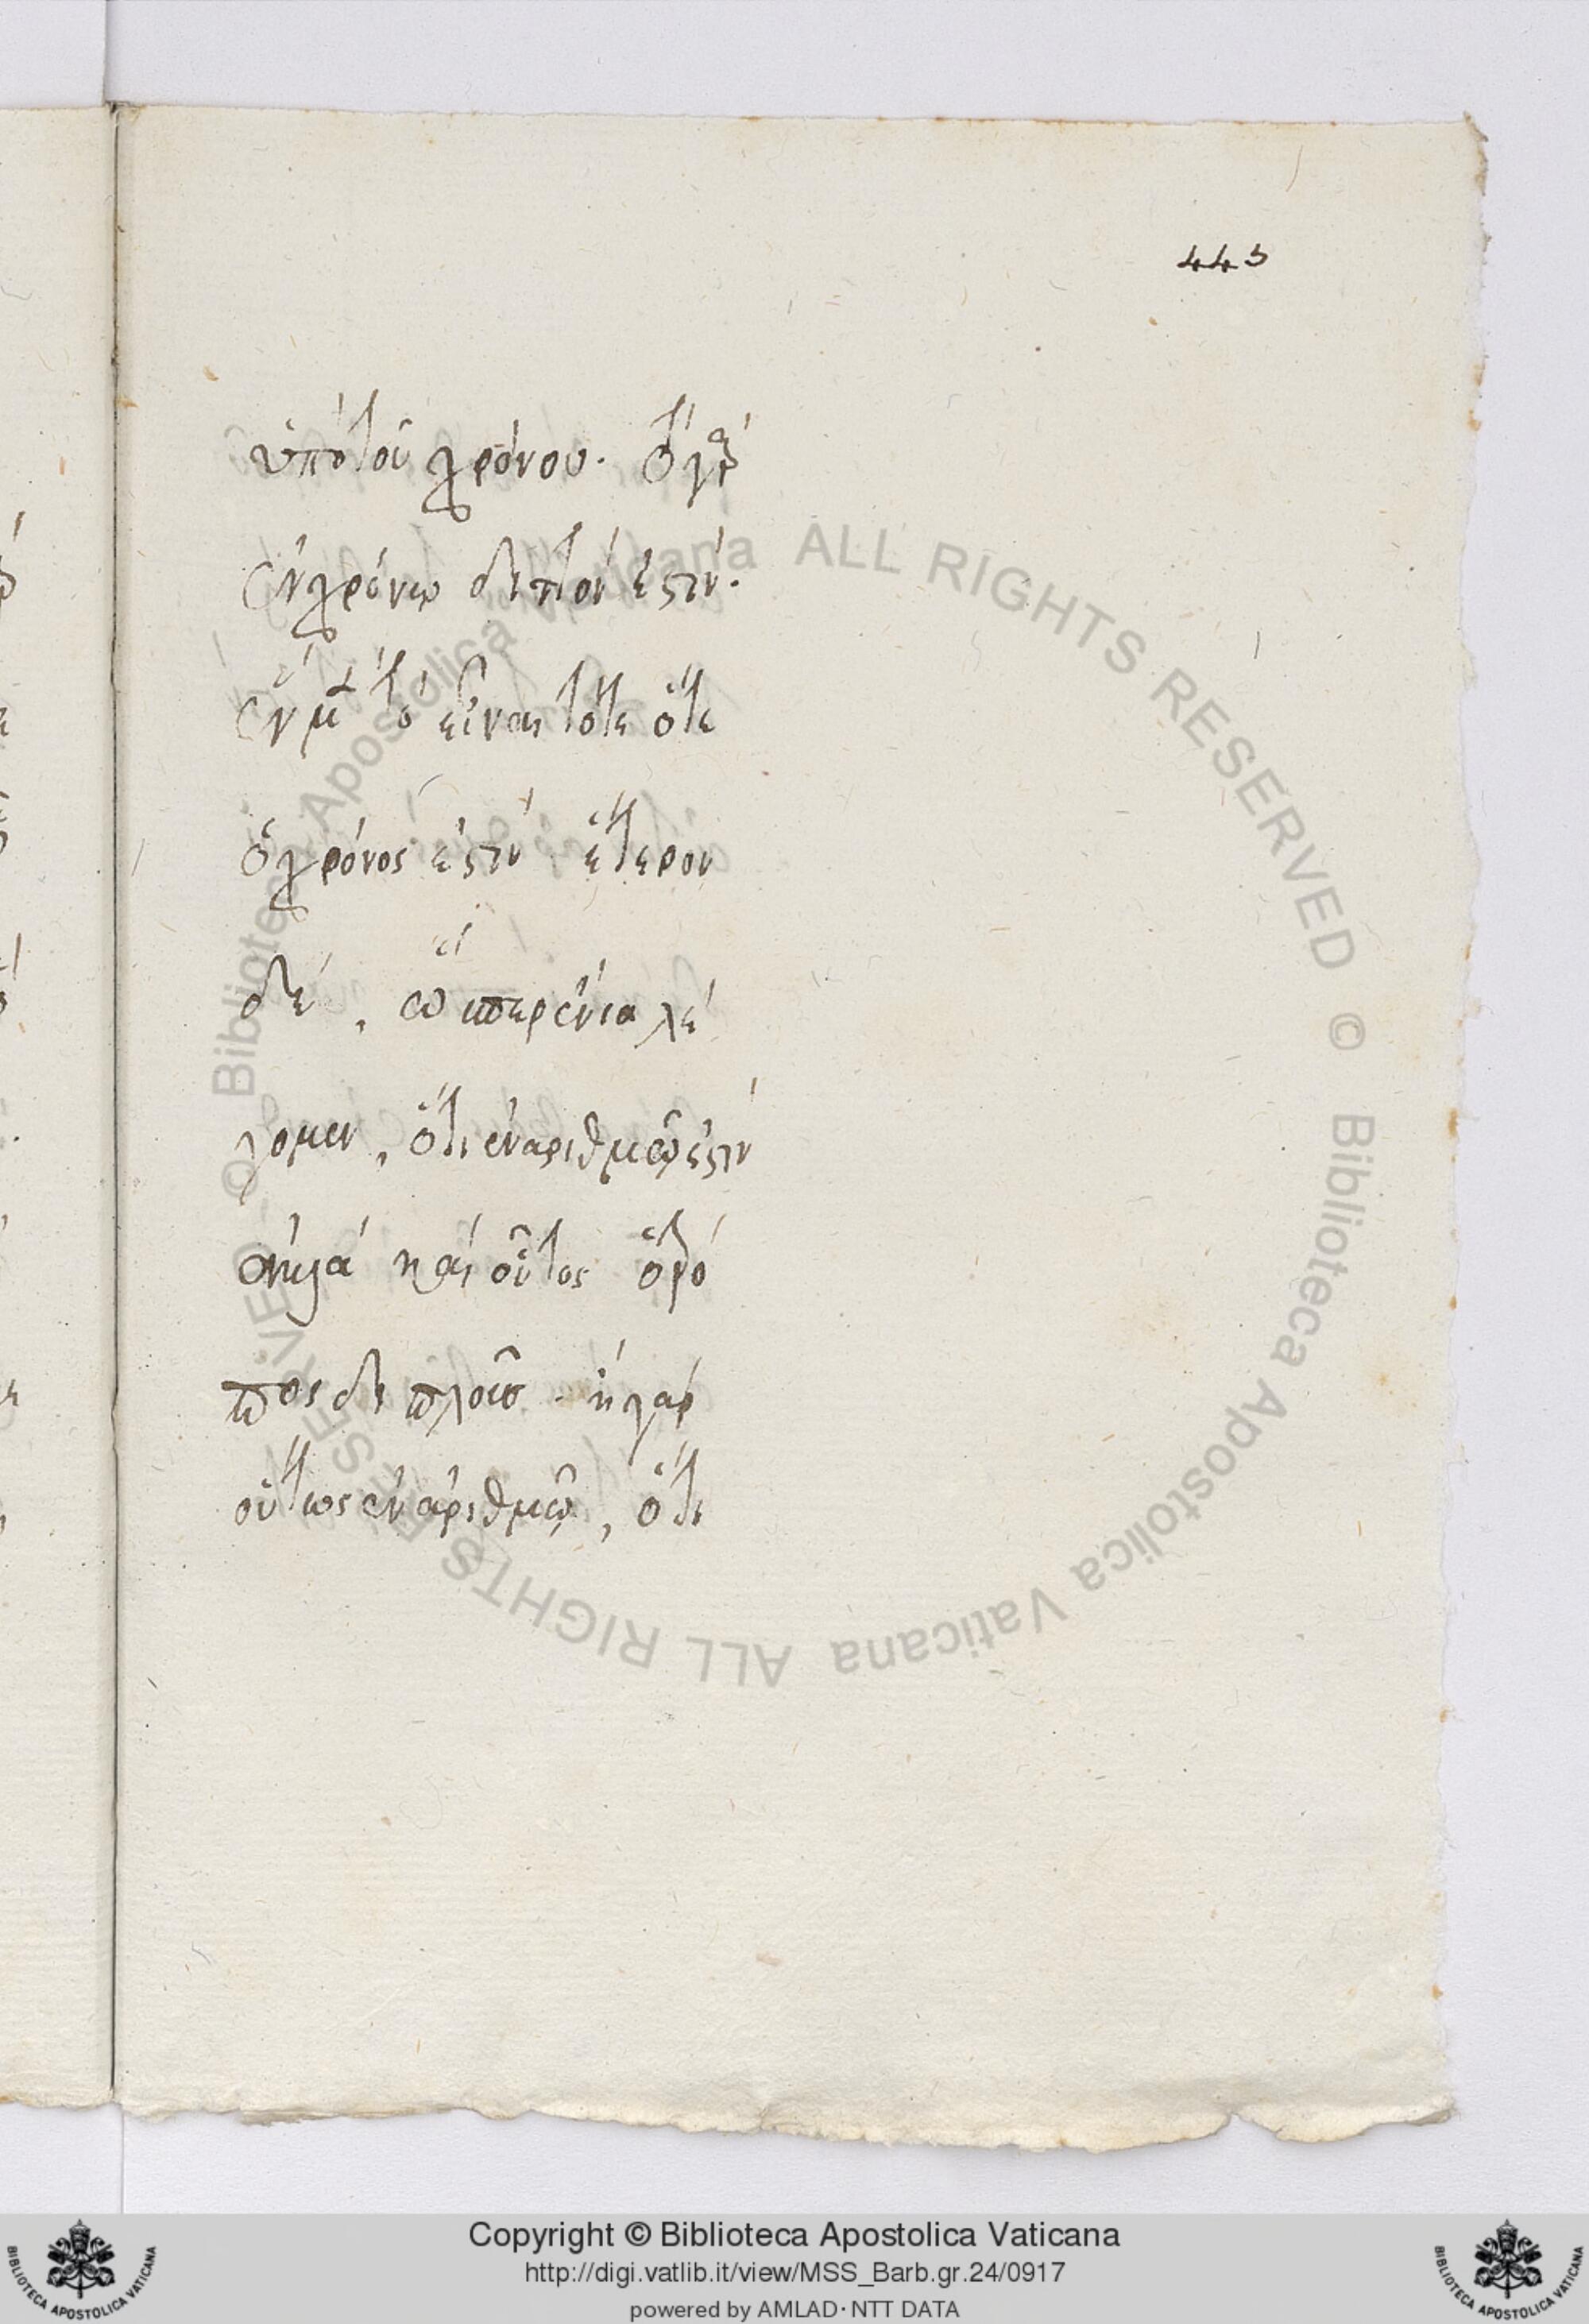 443
ὑπὸ τοῦ χρόνου. τὸ γὰρ
ἐν χρόνῳ διττόν ἐστιν.
ἓν μὲν τὸ εἶναι τότε ὅτε
ὁ χρόνος ἐστίν· ἕτερον
δέ, ὥσπερ ἔνια λέ
γομεν, ὅτι ἐν ἀριθμῷ ἐστίν
ἀλλὰ καὶ οὗτος ὁ τρό
πος διπλοῦς. ἢ γὰρ
οὕτως ἐν ἀριθμῷ, ὅτι
© Biblioteca Apostolica Vaticana ALL RIGHTS RESERVED © Biblioteca Apostolica Vaticana ALL RIGHTS RESERVED
Copyright © Biblioteca Apostolica Vaticana
http://digi.vatlib.it/view/MSS_Barb.gr.24/0917
powered by AMLAD·NTT DATA
BIBLIOTECA APOSTOLICA VATICANA
BIBLIOTECA APOSTOLICA VATICANA